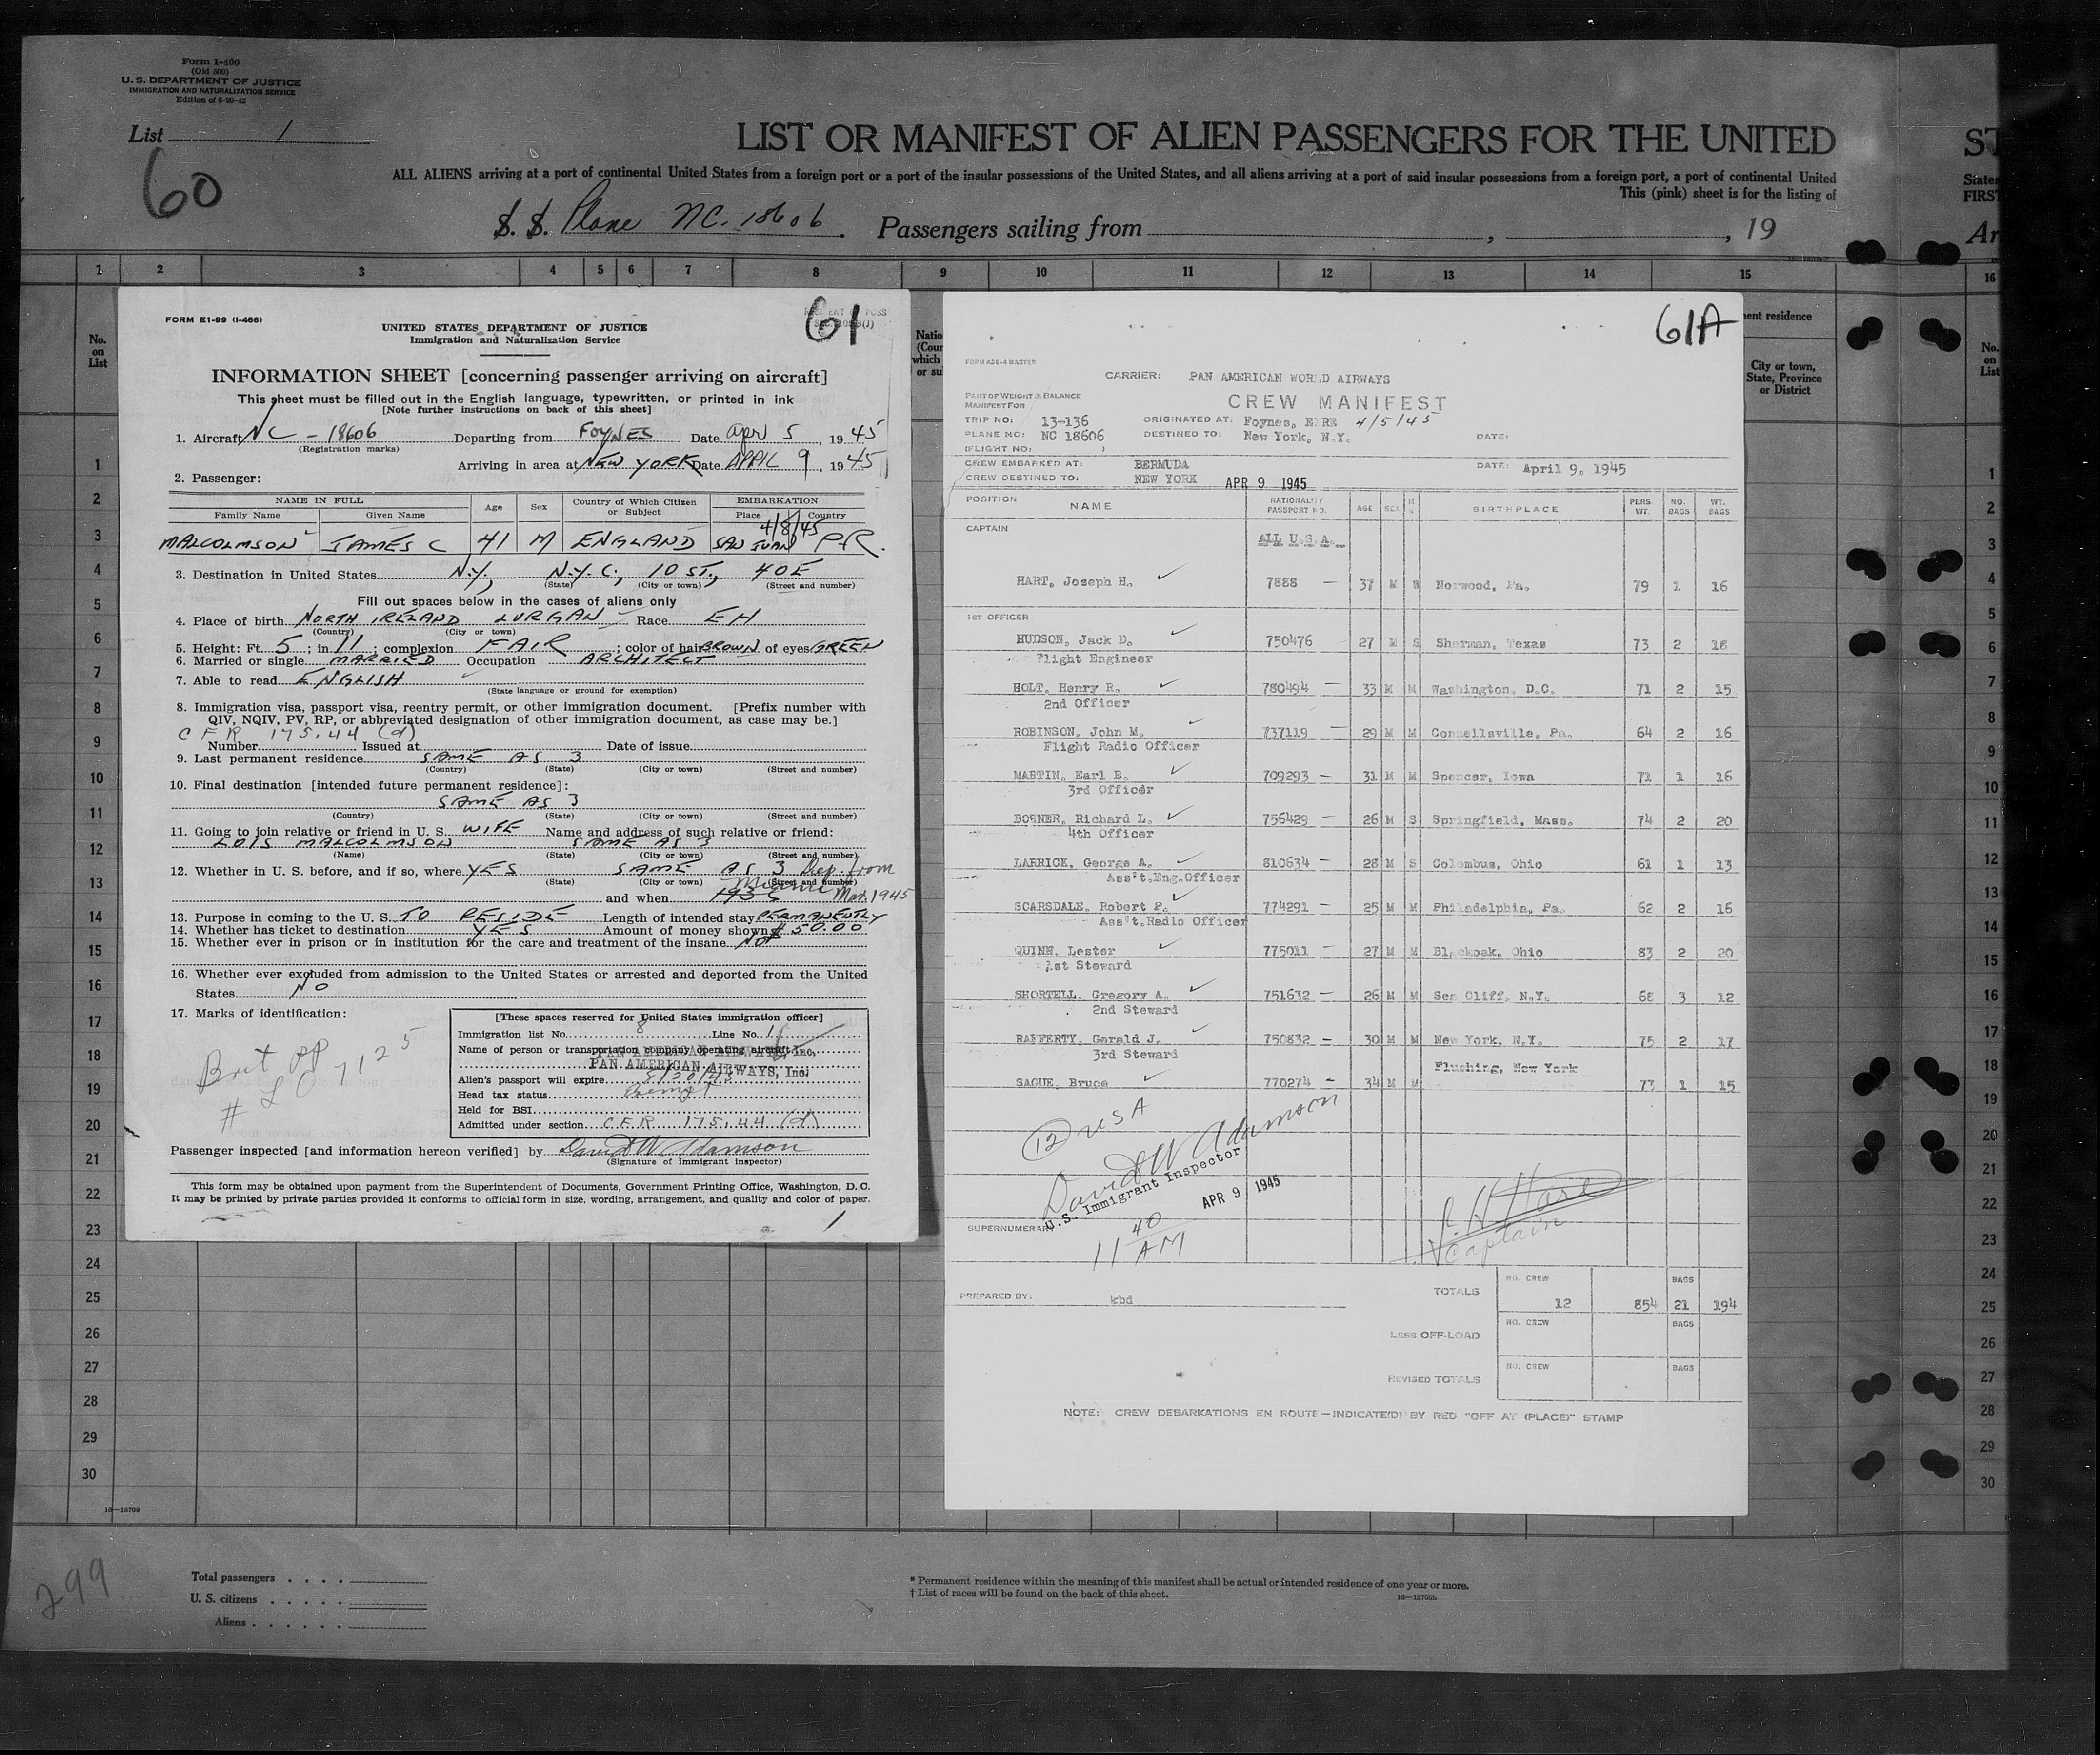 Form I-466
(Old 500)
U. S. DEPARTMENT OF JUSTICE
IMMIGRATION AND NATURALIZATION SERVICE
Edition of 6-20-42
List 1
60
LIST OR MANIFEST OF ALIEN PASSENGERS FOR THE UNITED ST
ALL ALIENS arriving at a port of continental United States from a foreign port or a port of the insular possessions of the United States, and all aliens arriving at a port of said insular possessions from a foreign port, a port of continental United States
This (pink) sheet is for the listing of FIRST
S. S. Plane NC. 18606. Passengers sailing from , , 19 Ar
1 2 3 4 5 6 7 8 9 10 11 12 13 14 15 16
No. on List
FORM E1-99 (I-466)
61
UNITED STATES DEPARTMENT OF JUSTICE
Immigration and Naturalization Service
INFORMATION SHEET [concerning passenger arriving on aircraft]
This sheet must be filled out in the English language, typewritten, or printed in ink
[Note further instructions on back of this sheet]
1. Aircraft NC - 18606 Departing from FOYNES Date Apr 5, 1945
(Registration marks)
Arriving in area at NEW YORK Date APRIL 9, 1945
2. Passenger:
NAME IN FULL Age Sex Country of Which Citizen or Subject EMBARKATION
Family Name Given Name Place Country
4/8/45
MALCOLMSON JAMES C 41 M ENGLAND SAN JUAN P.R.
3. Destination in United States N.Y., N.Y.C., 10 ST., 40E
(State) (City or town) (Street and number)
Fill out spaces below in the cases of aliens only
4. Place of birth NORTH IRELAND LURGAN Race EH
(Country) (City or town)
5. Height: Ft. 5; in. 11; complexion FAIR; color of hair BROWN of eyes GREEN
6. Married or single MARRIED Occupation ARCHITECT
7. Able to read ENGLISH
(State language or ground for exemption)
8. Immigration visa, passport visa, reentry permit, or other immigration document. [Prefix number with
QIV, NQIV, PV, RP, or abbreviated designation of other immigration document, as case may be.]
CFR 175.44 (d)
Number Issued at Date of issue
9. Last permanent residence SAME AS 3
(Country) (State) (City or town) (Street and number)
10. Final destination [intended future permanent residence]:
SAME AS 3
(Country) (State) (City or town) (Street and number)
11. Going to join relative or friend in U. S. WIFE Name and address of such relative or friend:
LOIS MALCOLMSON SAME AS 3
(Name) (State) (City or town) (Street and number)
12. Whether in U. S. before, and if so, where YES SAME AS 3 Dep. from
(State) (City or town) (Street and number)
Miami Mar. 1945
and when
13. Purpose in coming to the U. S. TO RESIDE Length of intended stay PERMANENTLY
14. Whether has ticket to destination YES Amount of money shown $50.00
15. Whether ever in prison or in institution for the care and treatment of the insane No
16. Whether ever excluded from admission to the United States or arrested and deported from the United
States No
17. Marks of identification:
Brit PP
# LO 7125
[These spaces reserved for United States immigration officer]
Immigration list No. 8 Line No. 1
Name of person or transportation company operating aircraft
PAN AMERICAN AIRWAYS, Inc.
PAN AMERICAN AIRWAYS, Inc.
Alien's passport will expire
Head tax status Exempt
Held for BSI
Admitted under section CFR 175.44 (d)
Passenger inspected [and information hereon verified] by David W Adamson
(Signature of immigrant inspector)
This form may be obtained upon payment from the Superintendent of Documents, Government Printing Office, Washington, D. C.
It may be printed by private parties provided it conforms to official form in size, wording, arrangement, and quality and color of paper.
1
61A
FORM A28-4 MASTER
CARRIER: PAN AMERICAN WORLD AIRWAYS
PART OF WEIGHT & BALANCE
MANIFEST FOR
CREW MANIFEST
TRIP NO: 13-136 ORIGINATED AT: Foynes, EIRE 4/5/45
PLANE NO: NC 18606 DESTINED TO: New York, N.Y. DATE:
(FLIGHT NO: )
CREW EMBARKED AT: BERMUDA DATE: April 9, 1945
CREW DESTINED TO: NEW YORK APR 9 1945
POSITION NAME NATIONALITY PASSPORT NO. AGE SEX BIRTHPLACE PERS. WT. NO. BAGS WT. BAGS
CAPTAIN ALL U.S.A.
HART, Joseph H. 7888 37 M Norwood, Pa. 79 1 16
1ST OFFICER
HUDSON, Jack D. 750476 27 M S Sherman, Texas 73 2 18
Flight Engineer
HOLT, Henry R. 780494 33 M M Washington, D.C. 71 2 15
2nd Officer
ROBINSON, John M. 737119 29 M M Connellsville, Pa. 64 2 16
Flight Radio Officer
MARTIN, Earl E. 709293 31 M M Spencer, Iowa 71 1 16
3rd Officer
BORNER, Richard L. 756429 26 M S Springfield, Mass. 74 2 20
4th Officer
LARRICK, George A. 810634 28 M S Colombus, Ohio 61 1 13
Ass't.Eng.Officer
SCARSDALE, Robert P. 774291 25 M M Philadelphia, Pa. 62 2 16
Ass't.Radio Officer
QUINN, Lester 775011 27 M M Blackoak, Ohio 83 2 20
1st Steward
SHORTELL, Gregory A. 751632 26 M M Sea Cliff, N.Y. 68 3 12
2nd Steward
RAFFERTY, Garald J. 750832 30 M M New York, N.Y. 75 2 17
3rd Steward
Flushing, New York
SAGUE, Bruce 770274 34 M M 73 1 15
12 USA
David W Adamson
U.S. Immigrant Inspector
APR 9 1945
SUPERNUMERARY
11 40 AM
Captain
PREPARED BY: kbd
TOTALS NO. CREW 12 854 BAGS 21 194
LESS OFF-LOAD NO. CREW BAGS
REVISED TOTALS NO. CREW BAGS
NOTE: CREW DEBARKATIONS EN ROUTE—INDICATE(D) BY RED "OFF AT (PLACE)" STAMP
ent residence
City or town, State, Province or District
1
2
3
4
5
6
7
8
9
10
11
12
13
14
15
16
17
18
19
20
21
22
23
24
25
26
27
28
29
30
16—18709
299
Total passengers
U. S. citizens
Aliens
* Permanent residence within the meaning of this manifest shall be actual or intended residence of one year or more.
† List of races will be found on the back of this sheet.